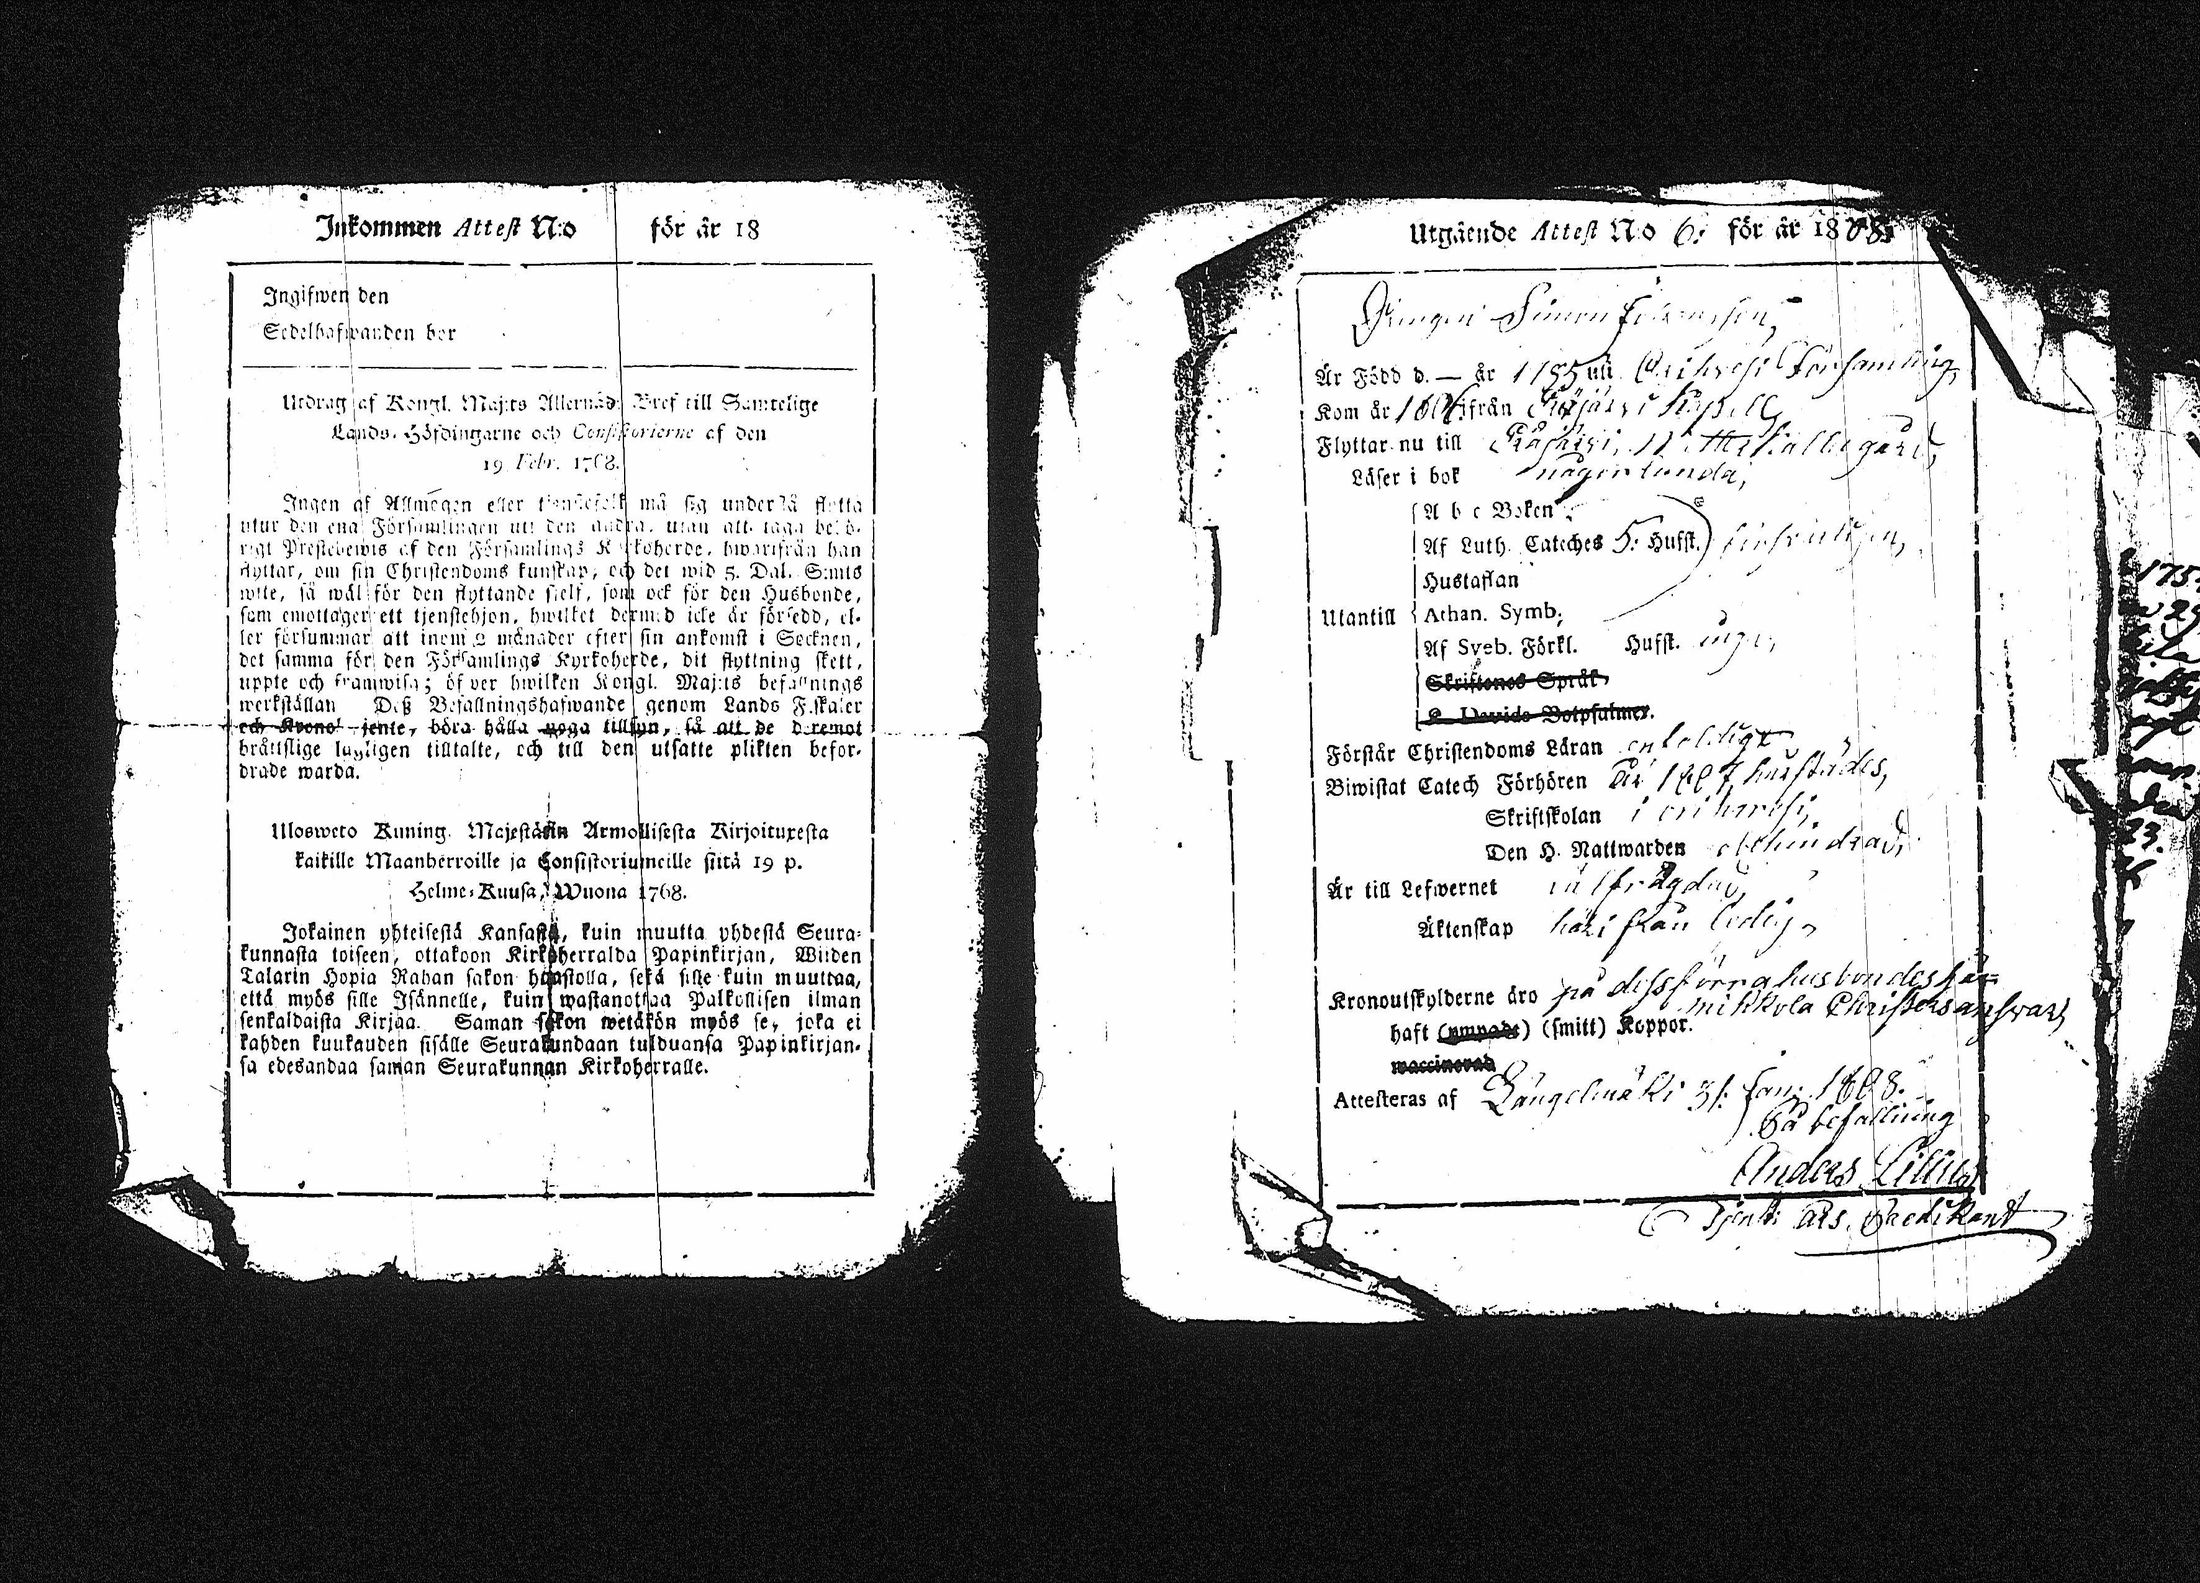 Inkommen Attest N:o för år 18
Ingifwen den
Sedelhafwanden bor
Utdrag af Kongl. Maj:ts Allernåd. Bref till Samtelige
Lands-Höfdingarne och Consistorierne af den
19 Febr. 1768.
Ingen af Allmogen eller tjenstefolk må sig understå flytta
utur den ena Församlingen uti den andra, utan att taga behö-
rigt Prestebewis af den Församlings Kyrkoherde, hwarifrån han
flyttar, om sin Christendoms kunskap, och det wid 5. Dal. S:mts
wite, så wäl för den flyttande sjelf, som ock för den Husbonde,
som emottager ett tjenstehjon, hwilket dermed icke är försedd, el-
ler försummar att inom 2 månader efter sin ankomst i Socknen,
det samma för den Församlings Kyrkoherde, dit flyttning skett,
uppte och framwisa; öfwer hwilken Kongl. Maj:ts befallnings
werkställan Deß Befallningshafwande genom Lands Fiskaler
och Krono-tjente, böra hålla noga tillsyn, så att de deremot
bråttslige lagligen tilltalte, och till den utsatte plikten befor-
drade warda.
Ulosweto Kuning. Majestätin Armollisesta Kirjoituxesta
kaikille Maanherroille ja Consistoriumeille siitä 19 p.
Helme-Kuusa, Wuona 1768.
Jokainen yhteisestä Kansasta, kuin muutta yhdestä Seura-
kunnasta toiseen, ottakoon Kirkoherralda Papinkirjan, Wiiden
Talarin Hopia Rahan sakon haastolla, sekä sille kuin muuttaa,
että myös sille Isännelle, kuin wastanottaa Palkollisen ilman
senkaldaista Kirjaa. Saman sakon wetäkön myös se, joka ei
kahden kuukauden sisälle Seurakundaan tulduansa Papinkirjan-
sa edesandaa saman Seurakunnan Kirkoherralle.
Utgående Attest N:o 6: för år 1808.
Drengen Simon
Är Född d. — år 1785 uti Orihvesi Församling,
Kom år från Kapell
Flyttar nu till
Läser i bok någorlunda,
A b c Boken
Af Luth. Cateches 5: Hufst.
Hustaflan
Utantill Athan. Symb;
Af Sveb. Förkl. Hufst. inga,
Skriftenes Språk
K. Davids Botpsalmer.
Förstår Christendoms Läran enfaldigt
Biwistat Catech Förhören År 1807 härstädes,
Skriftskolan i orihvesi,
Den H. Nattwarden obehindrad,
Är till Lefwernet
Äktenskap härifrån ledig,
Kronoutskylderne äro på dess förra husbondes
mikkola Christers answar,
haft (ympade) (smitt) Koppor.
waccinerad
Attesteras af Längelmäki 31. Jan: 1808.
På befallning
Anders Lilius